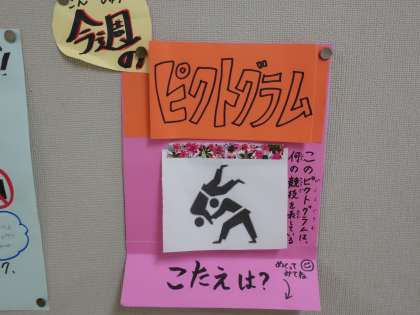 こんしゅう
今週
の
ピクトグラム
このピクトグラムは、
何の競技を表している
こたえは?
めくって
みてね